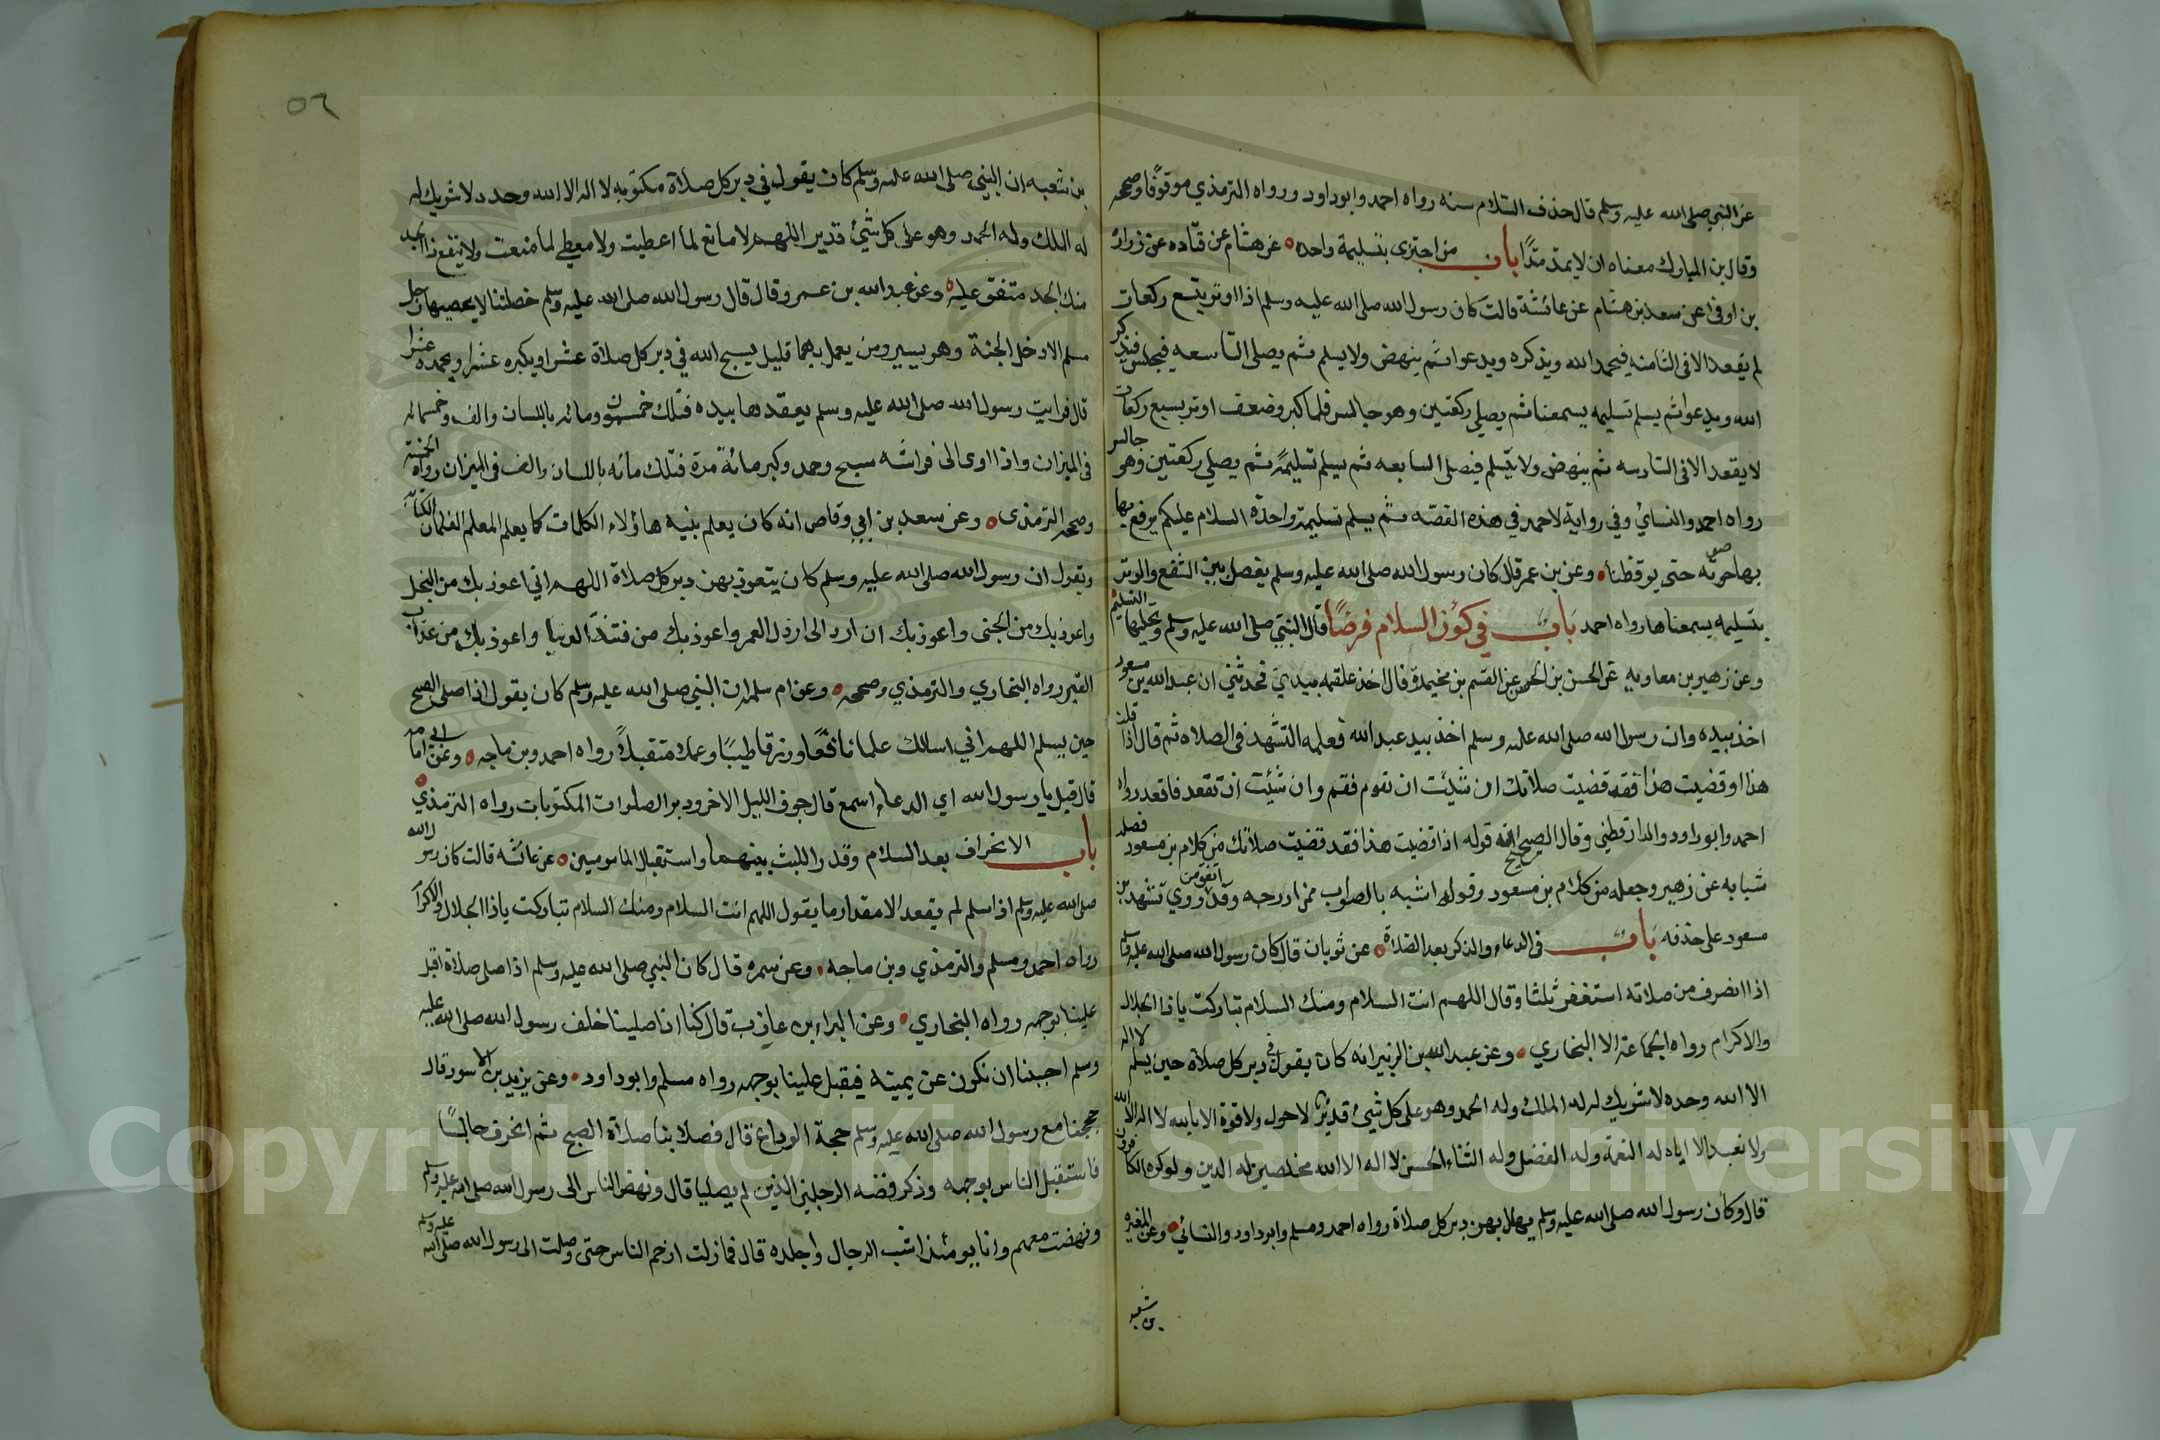 عن النبي صلى الله عليه وسلم قال حذف السلام سنه رواه احمد وابو داود ورواه الترمذي موقوفا وصححه
وقال بن المبارك معناه ان لا يمد مدًّا باب من اجتزى بتسليمة واحده عن هشام عن قتاده عن زرارة
بن اوفى عن سعد بن هشام عن عائشة قالت كان رسول الله صلى الله عليه وسلم اذا اوتر بتسع ركعات
لم يقعد الا في الثامنه فيحمد الله ويذكره ويدعوا ثم ينهض ولا يسلم ثم يصلى التاسعه فيجلس فيذكر
الله ويدعوا ثم يسلم تسليمه يسمعنا ثم يصلي ركعتين وهو جالس فلما كبر وضعف اوتر بسبع ركعات
لا يقعد الا في السادسه ثم ينهض ولا يسلم فيصلى السابعه ثم يسلم تسليمة ثم يصلي ركعتين وهو جالس
رواه احمد والنسائي وفي رواية لاحمد في هذه القصه ثم يسلم تسليمة واحدة السلام عليكم يرفع بها
بها صوته حتى يوقظنا وعن بن عمر قال كان رسول الله صلى الله عليه وسلم يفصل بين الشفع والوتر
بتسليمه يسمعناها رواه احمد باب في كون السلام فرضًا قال النبي صلى الله عليه وسلم وتحليلها التسليم
وعن زهير بن معاويه عن الحسن بن الحر عن القسم بن مخيمرة قال اخذ علقمه بيدي فحدثني ان عبد الله بن مسعود
اخذ بيده وان رسول الله صلى الله عليه وسلم اخذ بيد عبد الله فعلمه التشهد في الصلاه ثم قال اذا قلت
هذا او قضيت هذا فقد قضيت صلاتك ان شئت ان تقوم فقم وان شئت ان تقعد فاقعد رواه
احمد وابو داود والدارقطني وقال الصحيح ان قوله اذا قضيت هذا فقد قضيت صلاتك من كلام بن مسعود فصله
شبابه عن زهير وجعله من كلام بن مسعود وقوله اشبه بالصواب ممن ادرجه وقد اتفق من روي تشهد بن
مسعود على حذفه باب في الدعاء والذكر بعد الصلاة عن ثوبان قال كان رسول الله صلى الله عليه وسلم
اذا انصرف من صلاته استغفر ثلثا وقال اللهم انت السلام ومنك السلام تباركت يا ذا الجلال
والاكرام رواه الجماعة الا البخاري وعن عبد الله بن الزبير انه كان يقول في دبر كل صلاة حين يسلم لا اله
الا الله وحده لا شريك له له الملك وله الحمد وهو على كل شيئ قدير لا حول ولا قوة الا بالله لا اله الا الله
ولا نعبد الا اياه له النعمة وله الفضل وله الثناء الحسن لا اله الا الله مخلصين له الدين ولو كره الكافرون
قال وكان رسول الله صلى الله عليه وسلم يهلل بهن دبر كل صلاة رواه احمد ومسلم وابو داود والنسائي وعن المغيره
بن شعبه
٥٦
بن شعبه ان النبي صلى الله عليه وسلم كان يقول في دبر كل صلاة مكتوبه لا اله الا الله وحده لا شريك له
له الملك وله الحمد وهو على كل شيئ قدير اللهم لا مانع لما اعطيت ولا معطي لما منعت ولا ينفع ذا الجد
منك الجد متفق عليه وعن عبد الله بن عمرو قال قال رسول الله صلى الله عليه وسلم خصلتان لا يحصيهما رجل
مسلم الا دخل الجنة وهو يسير ومن يعمل بهما قليل يسبح الله في دبر كل صلاة عشرا ويكبره عشرا ويحمده عشرا
قال فرايت رسول الله صلى الله عليه وسلم يعقدها بيده فتلك خمسون ومائه باللسان والف وخمسمائه
في الميزان واذا اوى الى فراشه سبح وحمد وكبر مائة مرة فتلك مائه باللسان والف في الميزان رواه الخمسة
وصححه الترمذى وعن سعد بن ابي وقاص انه كان يعلم بنيه هاؤلاء الكلمات كما يعلم المعلم الغلمان الكتابه
ويقول ان رسول الله صلى الله عليه وسلم كان يتعوذ بهن دبر كل صلاة اللهم اني اعوذ بك من البخل
واعوذ بك من الجبن واعوذ بك ان ارد الى ارذل العمر واعوذ بك من فتنة الدنيا واعوذ بك من عذاب
القبر رواه البخاري والترمذي وصححه وعن ام سلمه ان النبي صلى الله عليه وسلم كان يقول اذا صلى الصبح
حين يسلم اللهم اني اسالك علما نافعًا ورزقا طيبًا وعملا متقبلاً رواه احمد وبن ماجه وعن ابي امامه
قال قيل يا رسول الله اي الدعاء اسمع قال جوف الليل الاخر ودبر الصلوات المكتوبات رواه الترمذي
باب الانحراف بعد السلام وقدر اللبث بينهما واستقبال المامومين عن عائشه قالت كان رسول الله
صلى الله عليه وسلم اذا سلم لم يقعد الا مقدار ما يقول اللهم انت السلام ومنك السلام تباركت يا ذا الجلال والاكرام
رواه احمد ومسلم والترمذي وبن ماجه وعن سمره قال كان النبي صلى الله عليه وسلم اذا صلى صلاة اقبل
علينا بوجهه رواه البخاري وعن البراء بن عازب قال كنا اذا صلينا خلف رسول الله صلى الله عليه
وسلم احببنا ان نكون عن يمينه فيقبل علينا بوجهه رواه مسلم وابو داود وعن يزيد بن الاسود قال
حججنا مع رسول الله صلى الله عليه وسلم حجة الوداع قال فصلا بنا صلاة الصبح ثم انحرف جالسًا
فاستقبل الناس بوجهه وذكر قصه الرجلين الذين لم يصليا قال ونهض الناس الى رسول الله صلى الله عليه وسلم
ونهضت معهم وانا يومئذ اشب الرجال واجلده قال فما زلت ازحم الناس حتى وصلت الى رسول الله صلى الله عليه وسلم
Copyright © King Saud University